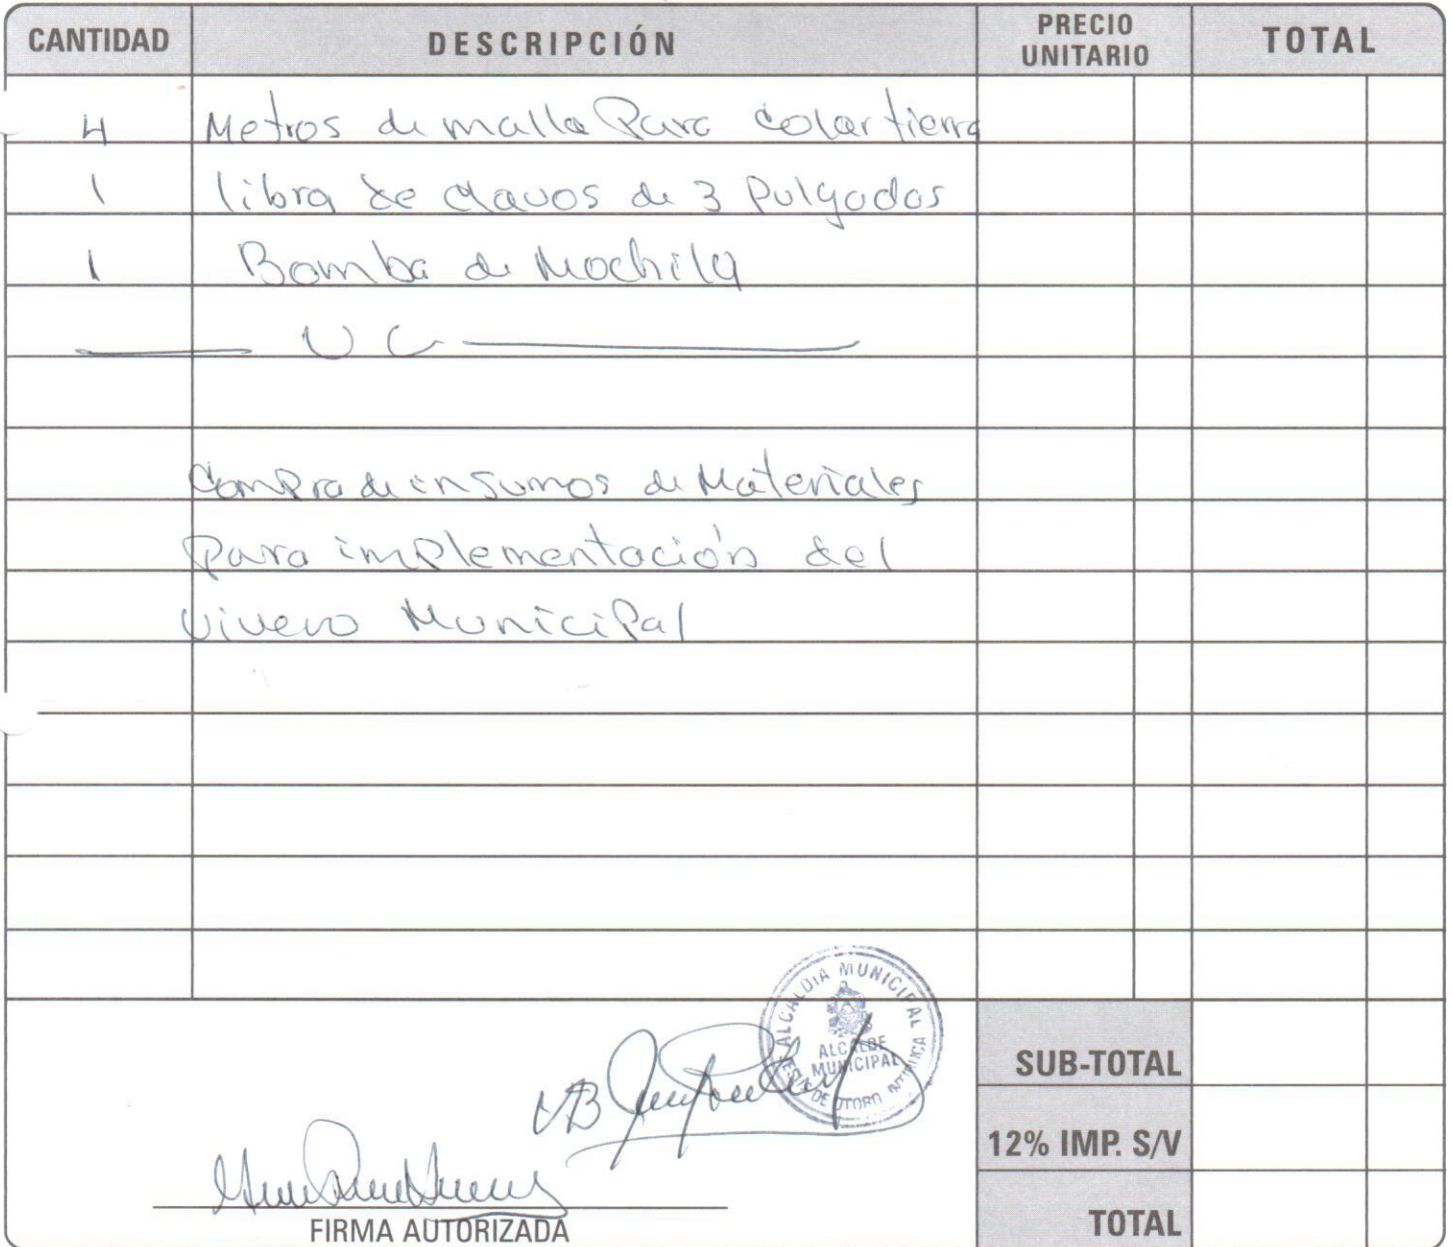 CANTIDAD DESCRIPCIÓN PRECIO UNITARIO TOTAL
4 Metros de malla Para colar tierra
1 libra de clavos de 3 Pulgadas
1 Bomba de Mochila
Compra de insumos de Materiales
para implementación del
vivero Municipal
ALCALDIA MUNICIPAL
ALCALDE
MUNICIPAL
JESUS DE OTORO INTIBUCA
SUB-TOTAL
12% IMP. S/V
VB
FIRMA AUTORIZADA
TOTAL